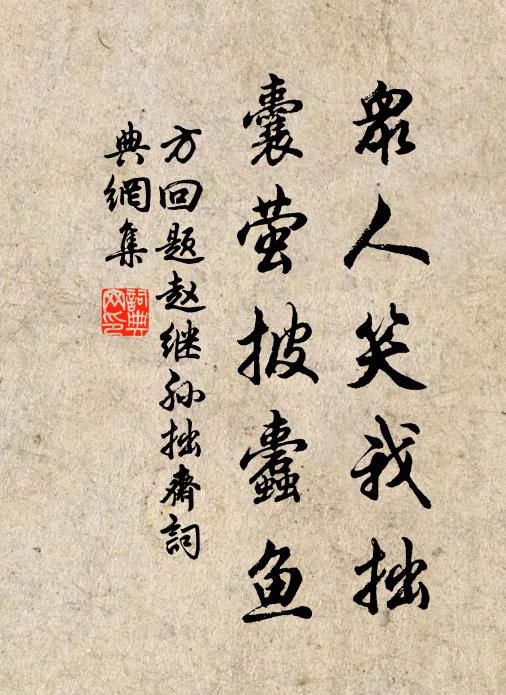 眾人笑我拙
囊萤披蠹鱼
方回题赵继孙拙斋詞
典網集
詞典网印